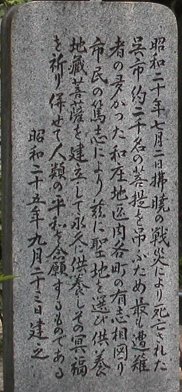 昭和二十年七月二日拂暁の戦災により死亡された
呉市約二千名の菩提を弔ふため最も遭難
者の多かった和庄地区内各町の有志相図り
市民の篤志により茲に聖地を選び供養
地蔵菩薩を建立して永久供養しその冥福
を祈り併せて人類の平和を念願するものである
昭和二十五年九月二十三日建之